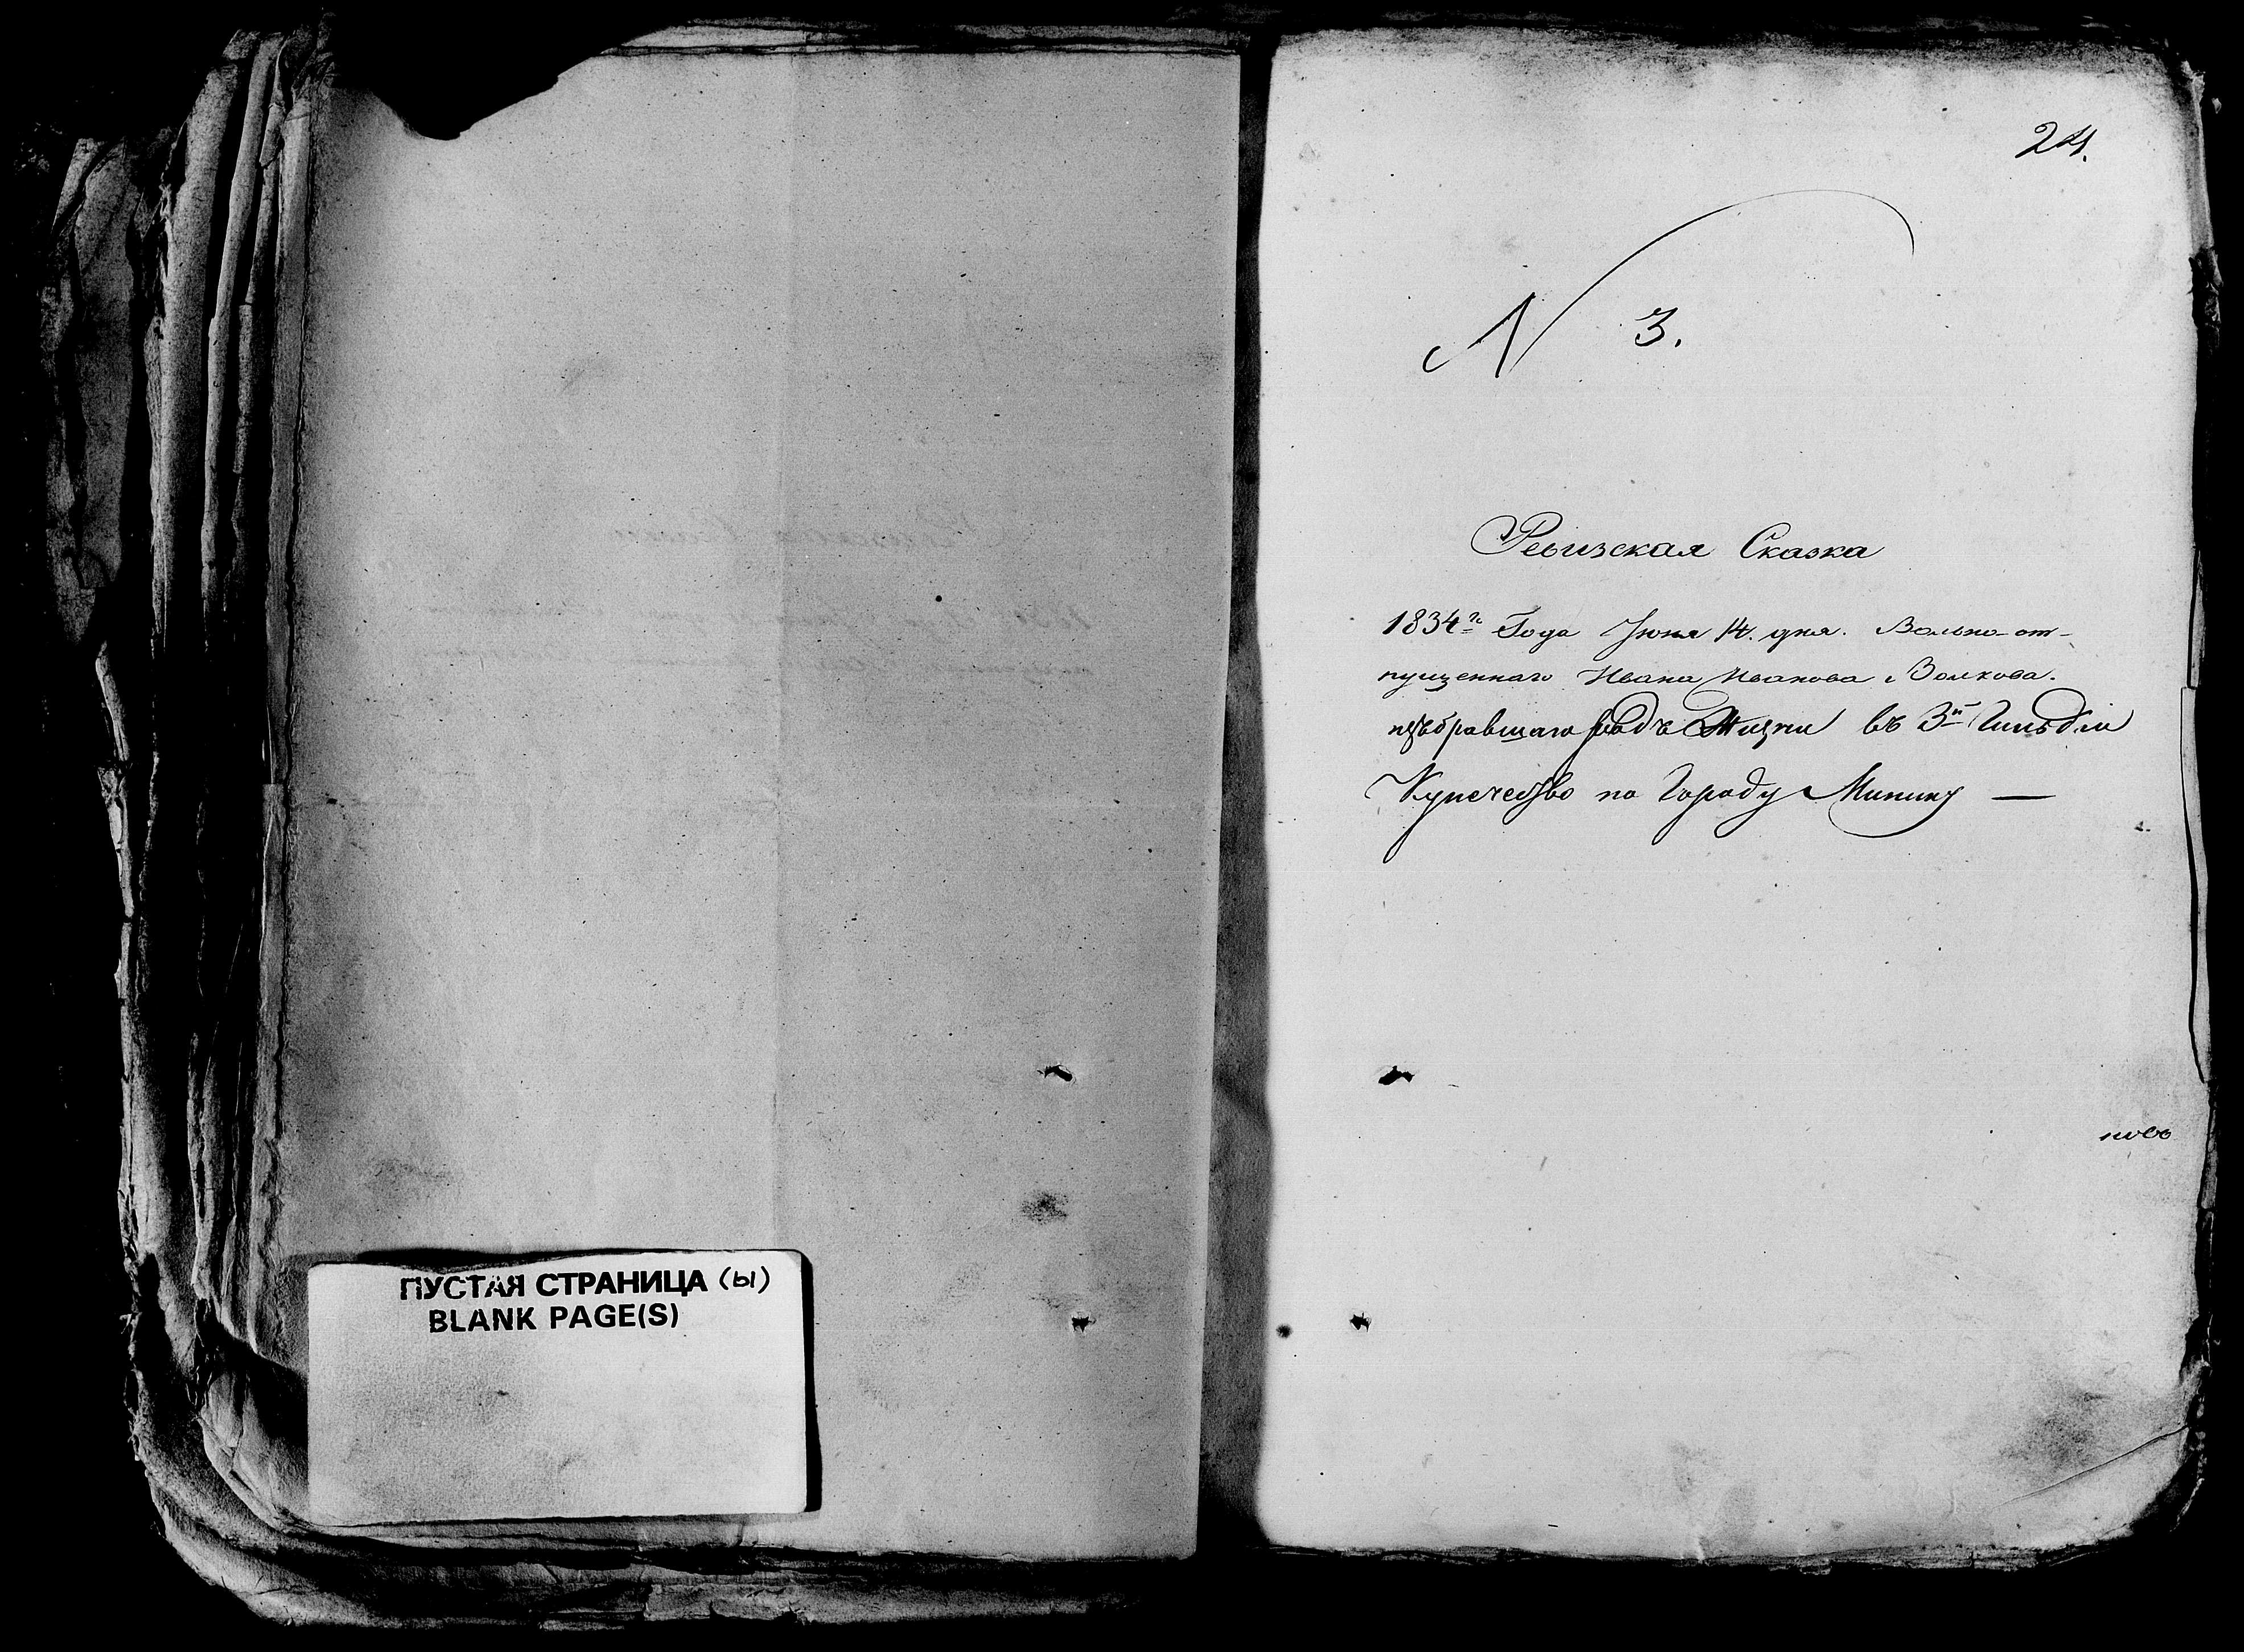 24.
N 3.
Ревизская Сказка
1834го Года Июня 14. дня. Вольно-от-
пущеннаго Ивана Иванова Волкова.
избравшаго родъ Жизни въ 3й Гильдіи
Купечество по Городу Минску —
ПУСТАЯ СТРАНИЦА (Ы)
BLANK PAGE(S)